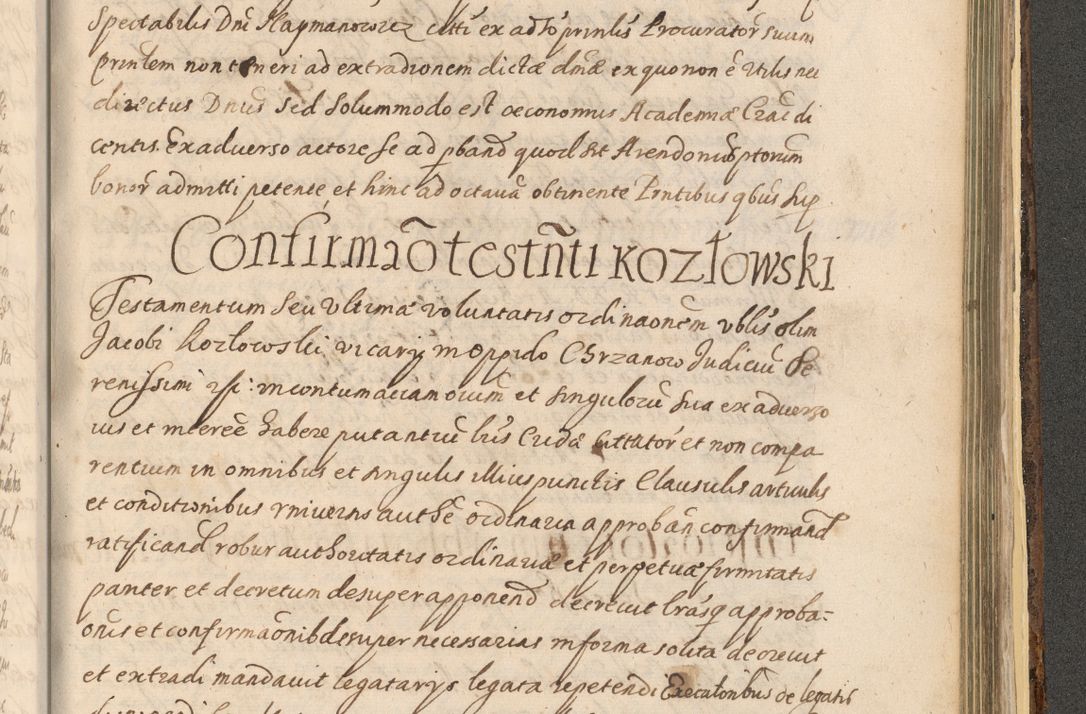 Spectabilis Dni Haymanowicz citti ex adõ prinlis Procurator suum
Prinlem non teneri ad extradionem dictæ dmæ ex quo non ẽ Utilis nec
directus Dnus Sed Solummodo est œconomus Academiæ Crac di
centis. Ex aduerso actore se ad pband quod sit Arendarius ptorum
bonor admitti petente et hinc ad octauã obtinente Pntibus qbus sup
Confirmaõ testñti Kozłowski
Testamentum seu Ultimæ voluntatis ordinaonem vblis olim
Jacobi Kozłowski vicarij in oppido Chrzanow Judiciũ Se
renissimi in contumaciam oium et singulorũ sua ex aduerso
ius et interẽe habere putantiũ lris Cudæ cittator et non compa
rentium in omnibus et singulis illius punctis Clausulis articulis
et conditionibus vniuersis authẽ ordinaria approbañ confirmand
ratificand robur authoritatis ordinariæ et perpetuæ firmitatis
pariter et decretum desuper apponend decreuit lrasq approba=
onis et confirmaonib desuper necessarias in forma solita decreuit
et extradi mandauit legatarijs legata repetendi Execatoribus de legatis